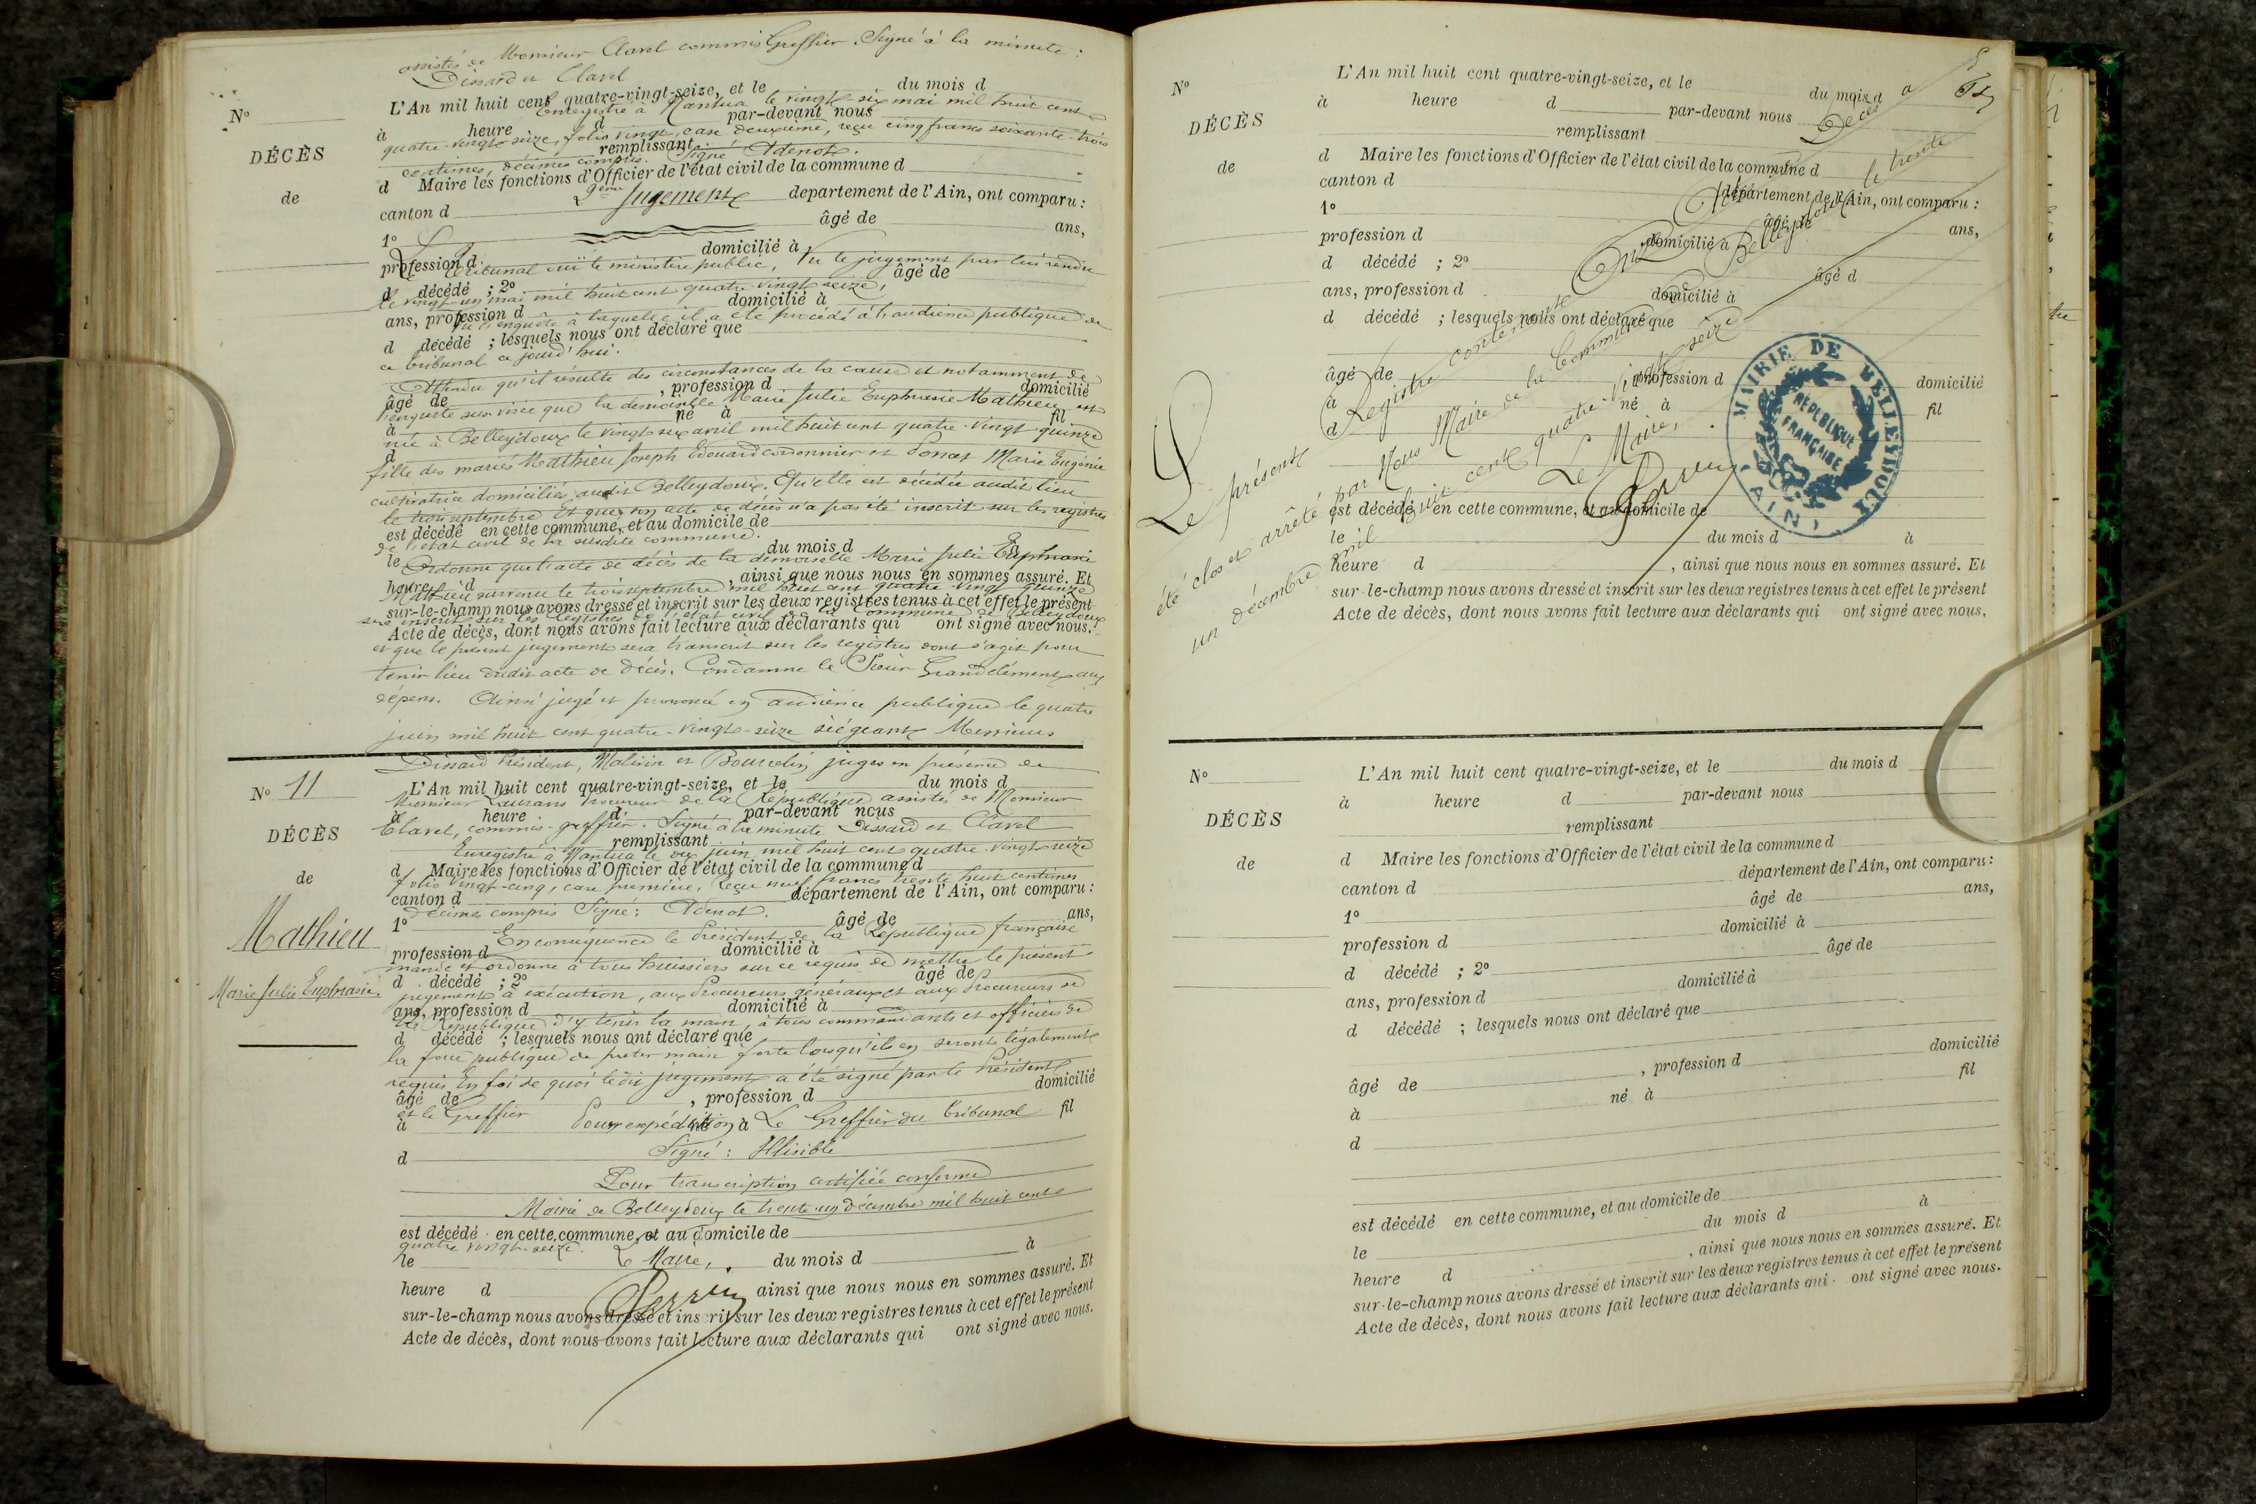 assistés de Monsieur Clavel commis Greffier. Signé à la minute :
Dissard et Clavel
No
L'An mil huit cent quatre-vingt-seize, et le du mois d
Enregistré à Nantua le vingt-six mai mil huit cent
à heure d par-devant nous
DÉCÈS
quatre-vingt-seize, folio vingt, case deuxième, reçu cinq francs soixante-trois
remplissant
centimes, décimes compris. Signé Adenot.
d Maire les fonctions d'Officier de l'état civil de la commune d
de
2ème Jugement
canton d departement de l'Ain, ont comparu :
1º âgé de ans,
profession d domicilié à
Le Tribunal ouï le ministère public, Vu le jugement par lui rendu
d décédé ; 2º âgé de
le vingt-un mai mil huit cent quatre vingt seize,
ans, profession d domicilié à
Vu l'enquête à laquelle il a été procédé à l'audience publique de
d décédé ; lesquels nous ont déclaré que
ce tribunal ce jourd'hui.
Attendu qu'il résulte des circonstances de la cause et notamment de
âgé de , profession d domicilié
l'enquête sus visée que la demoiselle Marie Julie Euphrasie Mathieu est
à né à fil
née à Belleydoux le vingt six avril mil huit cent quatre-vingt-quinze
d
fille des mariés Mathieu Joseph Edouard cordonnier et Poncet Marie Eugénie
cultivatrice domiciliés audit Belleydoux. Qu'elle est décédée audit lieu
le trois septembre et que son acte de décès n'a pas été inscrit sur les registres
est décédé en cette commune, et au domicile de
de l'état civil de la susdite commune.
le du mois d à
Ordonne que l'acte de décès de la demoiselle Marie Julie Euphrasie
heure d , ainsi que nous nous en sommes assuré. Et
Mathieu survenu le trois septembre mil huit cent quatre vingt quinze
sur-le-champ nous avons dressé et inscrit sur les deux registres tenus à cet effet le présent
sera inscrit sur les registres de l'état civil de la commune de Belleydoux
Acte de décès, dont nous avons fait lecture aux déclarants qui ont signé avec nous.
et que le présent jugement sera transcrit sur les registres dont s'agit pour
tenir lieu dudit acte de décès. Condamne le Sieur Grandclément aux
dépens. Ainsi jugé et prononcé en audience publique le quatre
juin mil huit cent quatre-vingt-seize siégeant Messieurs
Dissard Président, et Bourcelin juges en présence de
No 11
L'An mil huit cent quatre-vingt-seize, et le du mois d
Monsieur Laurans Procureur de la République assistés de Monsieur
à heure d par-devant nous
Clavel, commis-greffier. Signé à la minute Dissard et Clavel
DÉCÈS
remplissant
Enregistré à Nantua le dix juin mil huit cent quatre-vingt seize
d Maire les fonctions d'Officier de l'état civil de la commune d
de
folio vingt-cinq, case première, reçu neuf francs trente huit centimes
canton d département de l'Ain, ont comparu :
décimes compris Signé : Adenot.
1º âgé de ans,
Mathieu
En conséquence le Président de la République française
profession d domicilié à
mande et ordonne à tous huissiers sur ce requis de mettre le présent
d décédé ; 2º âgé de
Marie Julie Euphrasie
jugement à exécution, aux Procureurs généraux et aux Procureurs de
ans, profession d domicilié à
la République d'y tenir la main, à tous commandants et officiers de
d décédé ; lesquels nous ont déclaré que
la force publique de prêter main forte lorsqu'ils en seront légalement
requis En foi de quoi ledit jugement a été signé par le Président
âgé de , profession d domicilié
et le Greffier Pour expédition Le Greffier du tribunal
à né à fil
Signé : Illisible
d
Pour transcription certifiée conforme
Mairie de Belleydoux le trente un décembre mil huit cent
est décédé en cette commune, et au domicile de
quatre vingt-seize. Le Maire,
le du mois d à
heure d ainsi que nous nous en sommes assuré. Et
Perrin
sur-le-champ nous avons dressé et inscrit sur les deux registres tenus à cet effet le présent
Acte de décès, dont nous avons fait lecture aux déclarants qui ont signé avec nous.
No
L'An mil huit cent quatre-vingt-seize, et le du mois d
à heure d par-devant nous
DÉCÈS
remplissant
d Maire les fonctions d'Officier de l'état civil de la commune d
de
canton d département de l'Ain, ont comparu :
1º âgé de ans,
profession d domicilié à
d décédé ; 2º âgé d
ans, profession d domicilié à
d décédé ; lesquels nous ont déclaré que
âgé de , profession d domicilié
à né à fil
d
est décédé en cette commune, et au domicile de
le du mois d à
heure d , ainsi que nous nous en sommes assuré. Et
sur-le-champ nous avons dressé et inscrit sur les deux registres tenus à cet effet le présent
Acte de décès, dont nous avons fait lecture aux déclarants qui ont signé avec nous.
Le présent Registre contenant Onze Actes de Décès a
été clos et arrêté par Nous Maire de la Commune de Belleydoux le trente
un décembre mil huit cent quatre-vingt seize
Le Maire,
Perrin
MAIRIE DE BELLEYDOUX
RÉPUBLIQUE FRANÇAISE
(AIN)
No
L'An mil huit cent quatre-vingt-seize, et le du mois d
à heure d par-devant nous
DÉCÈS
remplissant
d Maire les fonctions d'Officier de l'état civil de la commune d
de
canton d département de l'Ain, ont comparu :
1º âgé de ans,
profession d domicilié à
d décédé ; 2º âgé de
ans, profession d domicilié à
d décédé ; lesquels nous ont déclaré que
âgé de , profession d domicilié
à né à fil
d
est décédé en cette commune, et au domicile de
le du mois d à
heure d , ainsi que nous nous en sommes assuré. Et
sur-le-champ nous avons dressé et inscrit sur les deux registres tenus à cet effet le présent
Acte de décès, dont nous avons fait lecture aux déclarants qui ont signé avec nous.